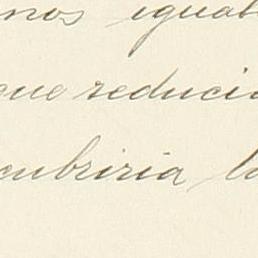 nos igual
que reduci
cubriria la